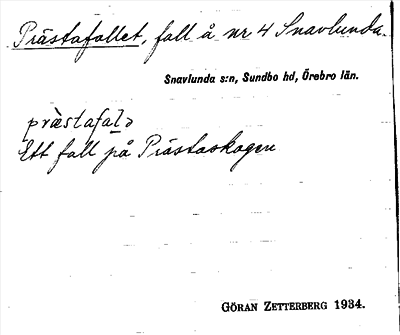 Prästafallet, fall å nr 4 Snavlunda.
Snavlunda s:n, Sundbo hd, Örebro län.
præ̀stafaḻə
Ett fall på Prästaskogen
GÖRAN ZETTERBERG 1934.